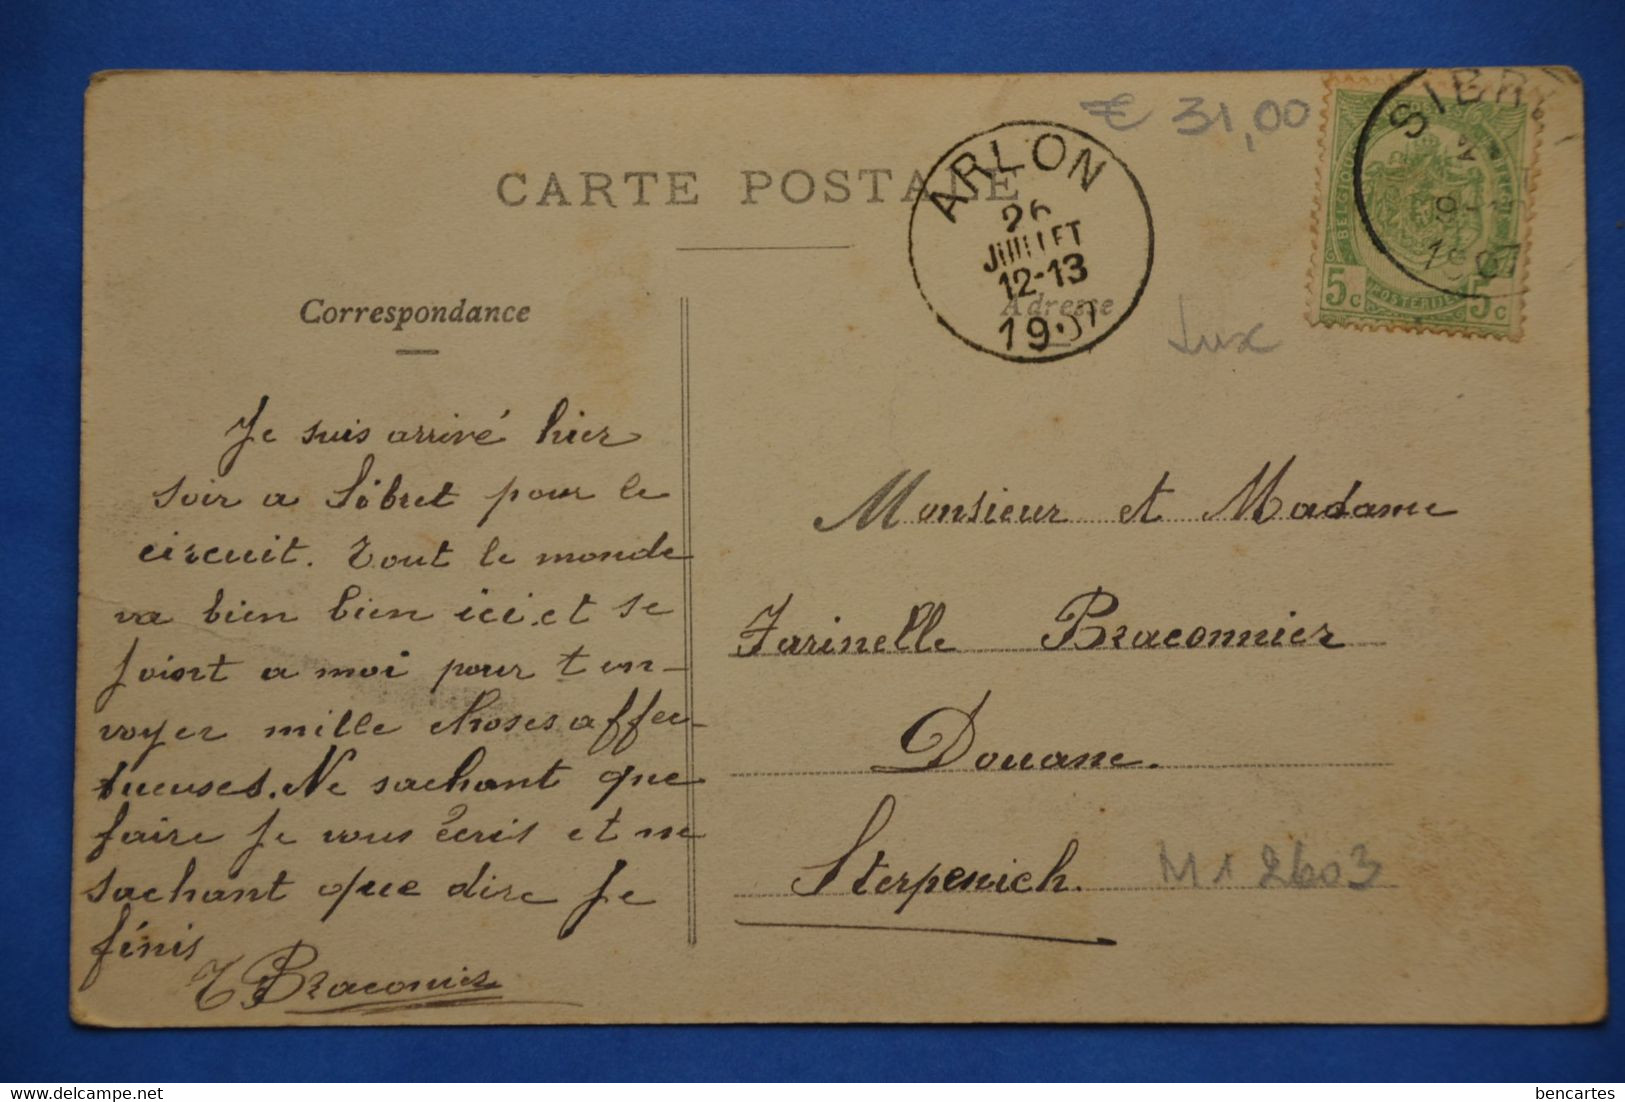 € 31,00
SIBR
1907
BELGIQUE
5c POSTERIJEN 5c
CARTE POSTALE
ARLON
26
JUILLET
12-13
1907
Correspondance
Adresse
Lux
Je suis arrivé hier
soir a Sibret pour le
circuit. Tout le monde
va bien bien ici et se
joint a moi pour t en-
voyer mille choses affec-
tueuses. Ne sachant que
faire je vous écris et ne
sachant que dire je
finis
T Braconnier
Monsieur et Madame
Farinelle Braconnier
Douane.
Sterpenich.
M1 2603
bencartes